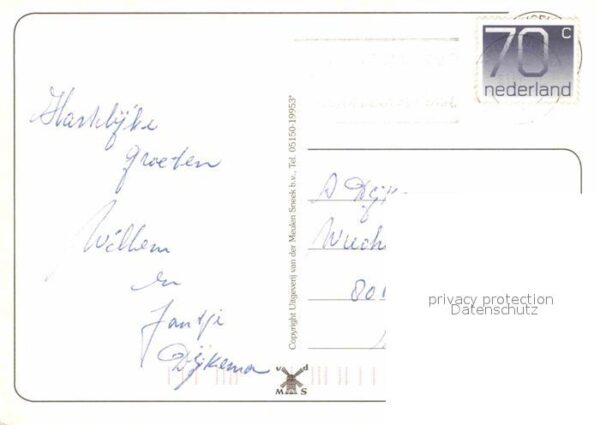 Hartelijke
groeten
Willem
en
Jantje
Dijkema
Copyright Uitgeverij van der Meulen Sneek b.v., Tel. 05150-19953*
v d
M S
70 c
nederland
A Dijk
801
privacy protection
Datenschutz